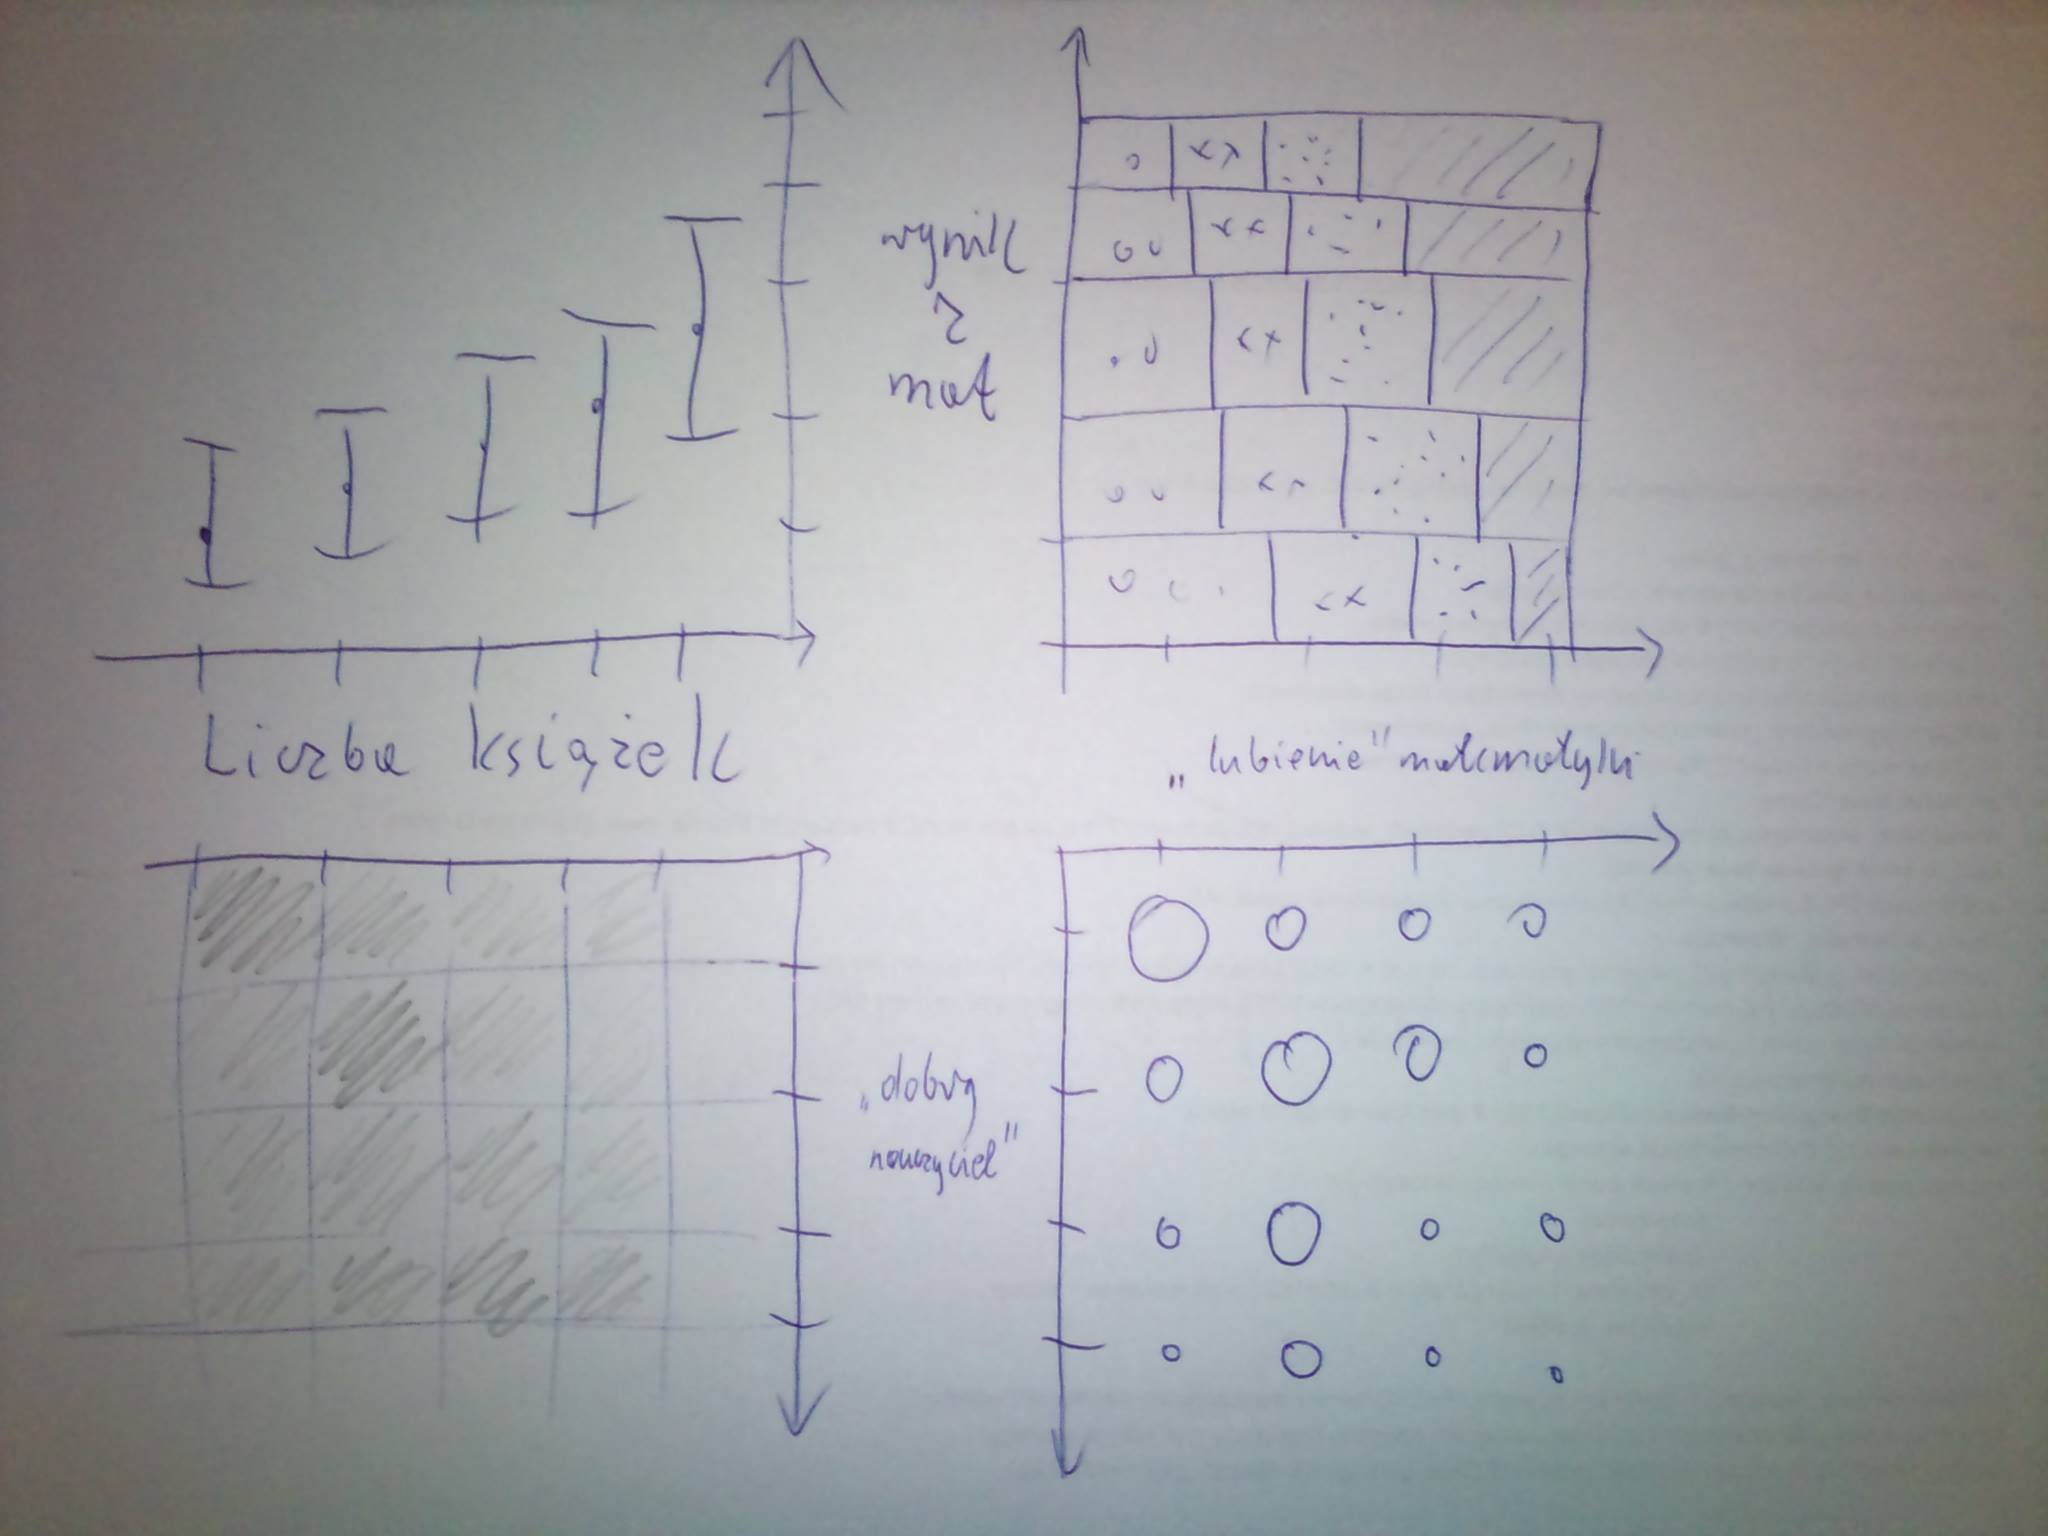 wynik
z
mat
Liczba książek
„lubienie" matematyki
„dobry
nauczyciel"